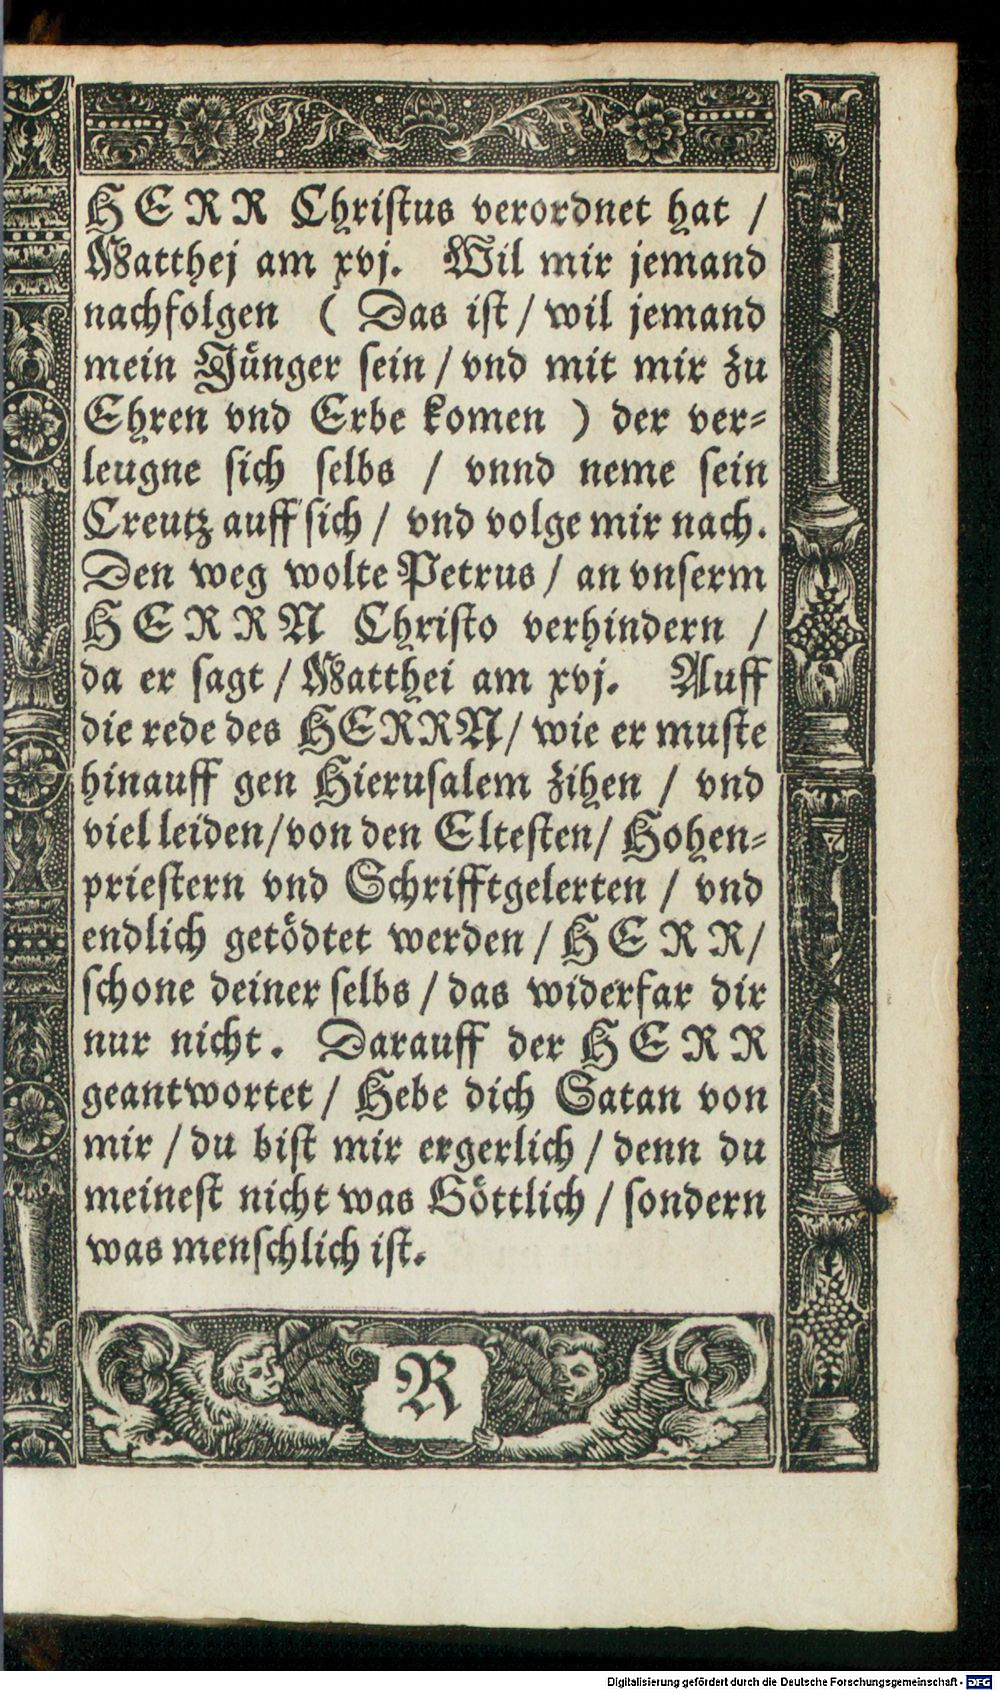 HERR Christus verordnet hat /
Matthej am xvj. Wil mir jemand
nachfolgen ( Das ist / wil jemand
mein Jünger sein / vnd mit mir zu
Ehren vnd Erbe komen ) der ver-
leugne sich selbs / vnnd neme sein
Creutz auff sich / vnd volge mir nach.
Den weg wolte Petrus / an vnserm
HERRN Christo verhindern /
da er sagt / Matthei am xvj. Auff
die rede des HERRN / wie er muste
hinauff gen Hierusalem zihen / vnd
viel leiden / von den Eltesten / Hohen-
priestern vnd Schrifftgelerten / vnd
endlich getödtet werden / HERR /
schone deiner selbs / das widerfar dir
nur nicht. Darauff der HERR
geantwortet / Hebe dich Satan von
mir / du bist mir ergerlich / denn du
meinest nicht was Göttlich / sondern
was menschlich ist.
R
Digitalisierung gefördert durch die Deutsche Forschungsgemeinschaft - DFG